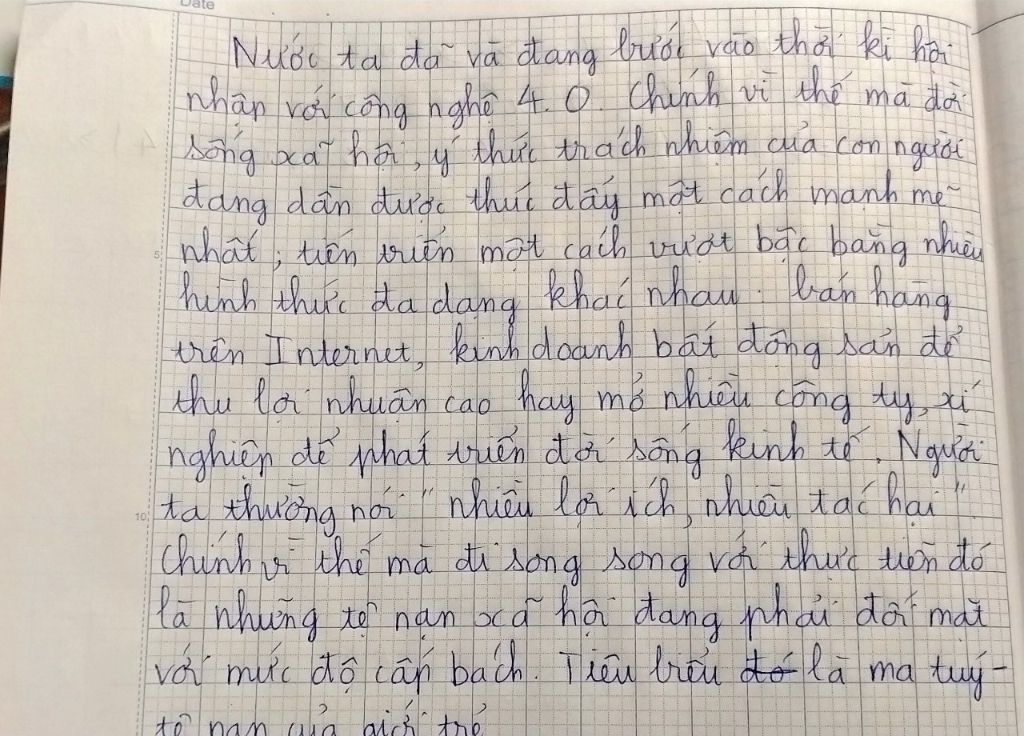 Date
Nước ta đã và đang bước vào thời kì hội
nhập với công nghệ 4.0. Chính vì thế mà đời
sống xã hội, ý thức trách nhiệm của con người
đang dần được thúc đẩy một cách mạnh mẽ
nhất, tiến triển một cách vượt bậc bằng nhiều
hình thức đa dạng khác nhau. bán hàng
trên Internet, kinh doanh bất động sản để
thu lợi nhuận cao hay mở nhiều công ty, xí
nghiệp để phát triển đời sống kinh tế. Người
ta thường nói "nhiều lợi ích, nhiều tác hại"
Chính vì thế mà đi song song với thực tiễn đó
là những tệ nạn xã hội đang phải đối mặt
với mức độ cấp bách. Tiêu biểu đó là ma tuý -
tệ nạn của giới trẻ